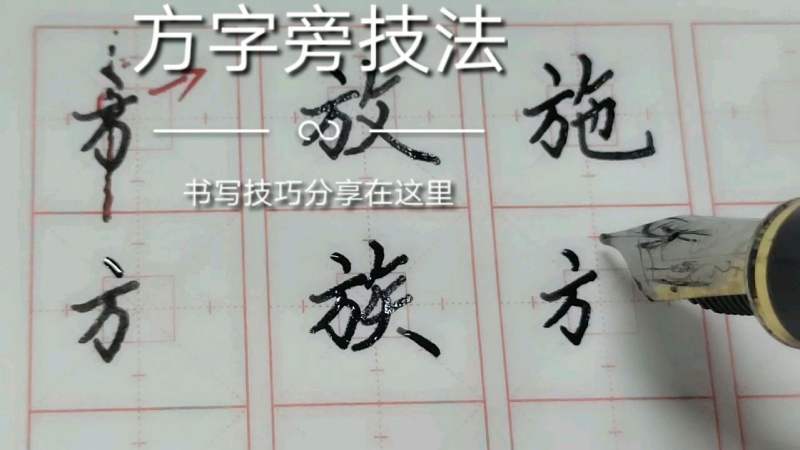 方字旁技法
方 放 施
书写技巧分享在这里
方 族 方